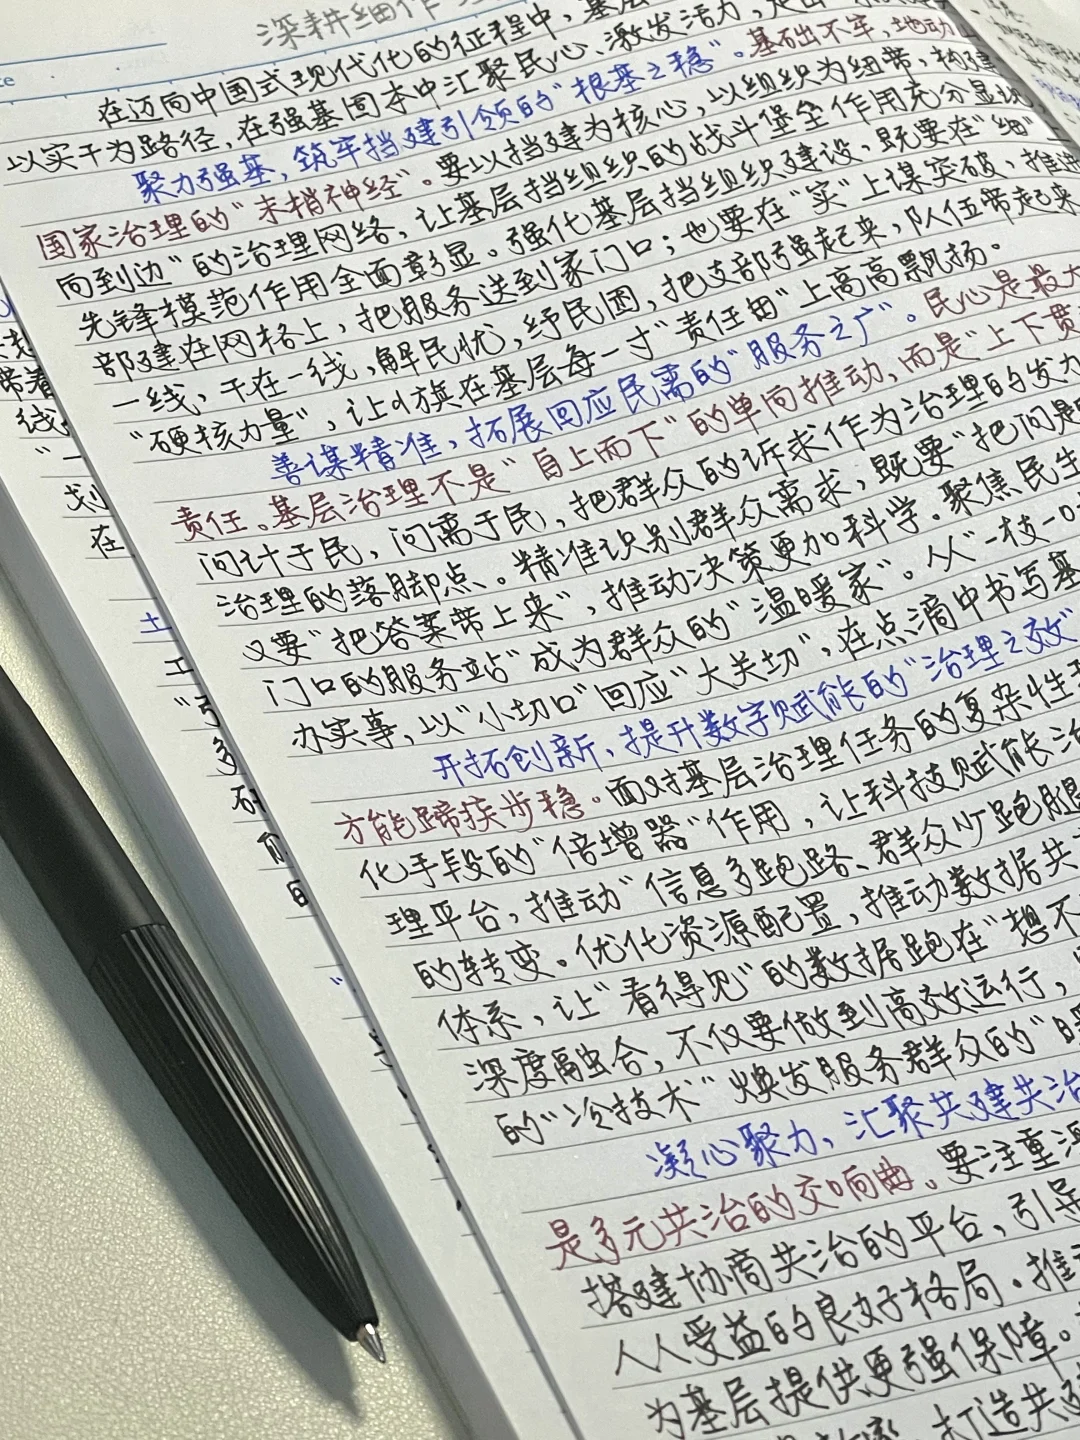 深耕细作
在迈向中国式现代化的征程中，基层
以实干为路径，在强基固本中汇聚民心、激发活力，
聚力强基，筑牢党建引领的"根基之稳"。基础不牢，地动
国家治理的"末梢神经"。要以党建为核心，以组织为纽带，构建
向到边"的治理网络，让基层党组织的战斗堡垒作用充分显现，
先锋模范作用全面彰显。强化基层党组织建设，既要在"细"
部建在网格上，把服务送到家门口；也要在"实"上谋突破，推进
一线，干在一线，解民忧，纾民困，把支部强起来，队伍带起来
"硬核力量"，让党旗在基层每一寸"责任田"上高高飘扬。
善谋精准，拓展回应民需的"服务之广"。民心是最大
责任。基层治理不是"自上而下"的单向推动，而是"上下贯
问计于民，问需于民，把群众的诉求作为治理的发力
治理的落脚点。精准识别群众需求，既要"把问题
又要"把答案带上来"，推动决策更加科学。聚焦民生
门口的服务站"成为群众的"温暖家"。从"一枝一
办实事，以"小切口"回应"大关切"，在点滴中书写基
开拓创新，提升数字赋能的"治理之效"
方能蹄疾步稳。面对基层治理任务的复杂性
化手段的"倍增器"作用，让科技赋能治
理平台，推动"信息多跑路、群众少跑腿
的转变。优化资源配置，推动数据共
体系，让"看得见"的数据跑在"想不
深度融合，不仅要做到高效运行，
的"冷技术"焕发服务群众的"暖
凝心聚力，汇聚共建共治
是多元共治的交响曲。要注重
搭建协商共治的平台，引导
人人受益的良好格局。推
为基层提供更强保障。
打造共建
带着
线
"一
划
在
土
工
"引
多